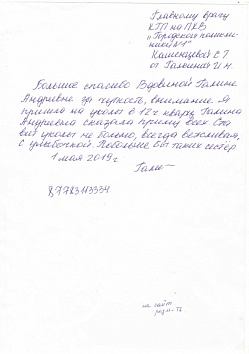 Главному врагу
КГП на ПХВ
„Городской поликли-
ники №1"
Каменцевой С Г
от Галкиной И. Н.
Большое спасибо Вдовиной Галине
Андреевне за чуткость, внимание. Я
пришла на уколы в 12 г кварц Галина
Андреевна сказала приму всех Ста
вит уколы не больно, всегда вежливая,
с улыбочкой. Побольше бы таких сестёр
1 мая 2019 г
Галк
87783113334
на сайт